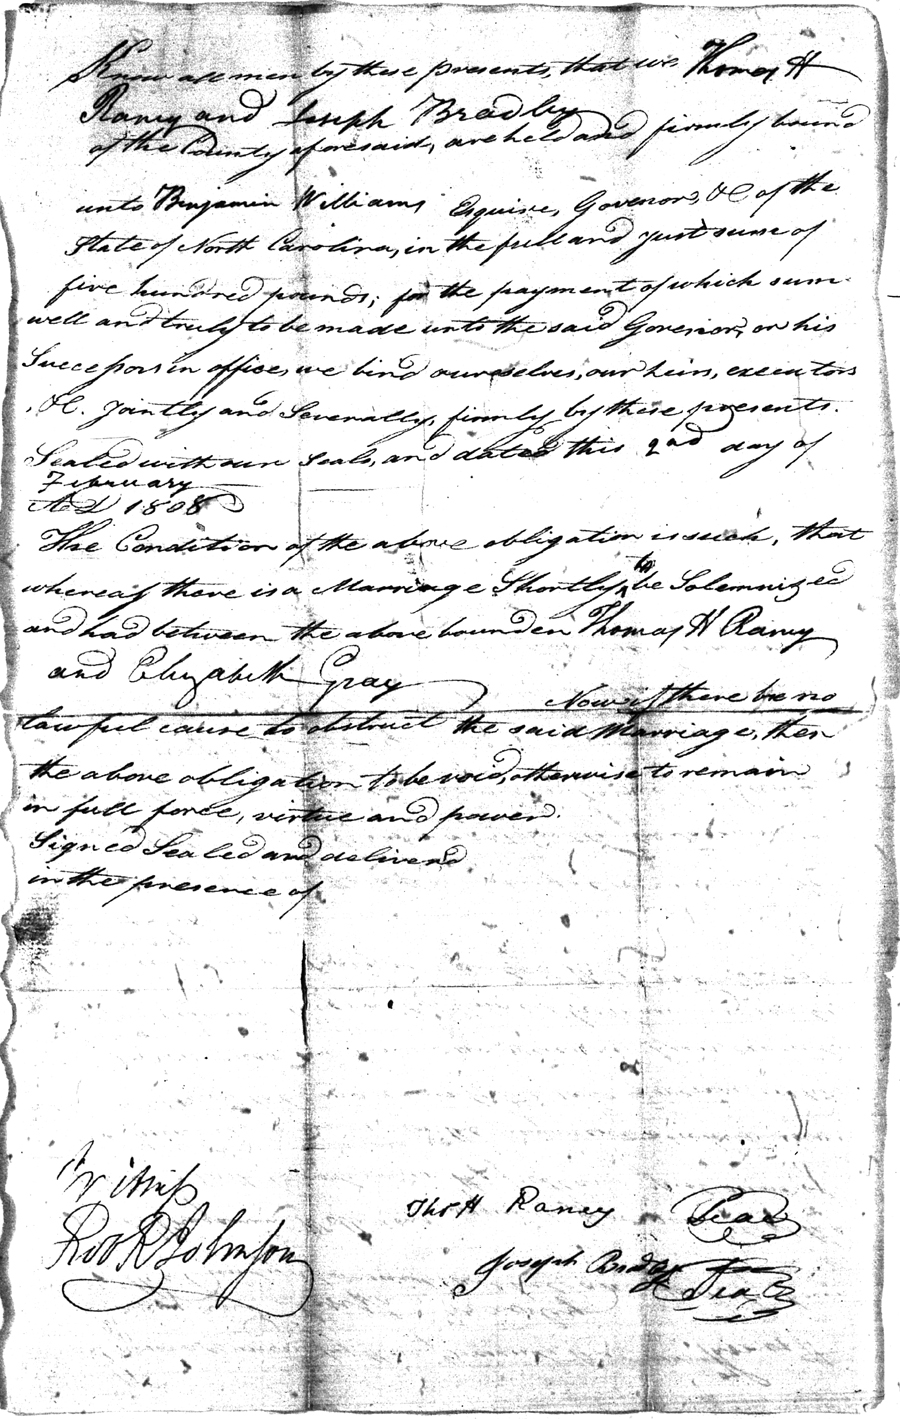 Know all men by these presents, that we Thomas H
Raney and Joseph Bradby
of the County aforesaid, are held and firmly bound
unto Benjamin Williams Esquire, Governor, &C of the
State of North Carolina, in the full and just sum of
five hundred pounds; for the payment of which sum
well and truly to be made unto the said Governor, or his
Successors in office, we bind ourselves, our heirs, executors
, &C. Jointly and Severally, firmly by these presents.
Sealed with our seals, and dated this 2nd day of
February
AD 1808
The Condition of the above obligation is such, that
whereas there is a Marriage Shortly to be Solemnized
and had between the above bounden Thomas H Raney
and Elizabeth Gray
Now if there be no
lawful cause to obstruct the said Marriage, then
the above obligation to be void, otherwise to remain
in full force, virtue and power.
Signed Sealed and deliverd
in the presence of
Witness
Thos H Raney Seal
Johnson
Joseph Seal